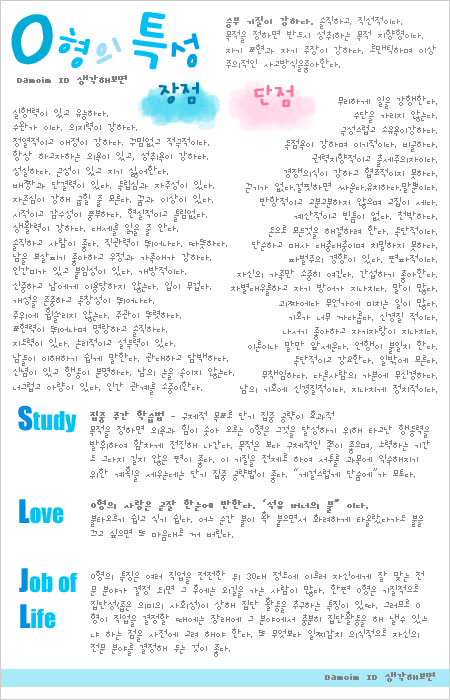 O형의 특성
승부 기질이 강하다. 솔직하고, 직선적이다.
목적을 정하면 반드시 성취하는 목적 지향형이다.
자기 표현과 자기 주장이 강하다. 로맨틱하며 이상
주의적인 사고방식을좋아한다.
Damoim ID 생각해보면
장점
단점
실행력이 있고 유능하다.
수완가 이다. 의지력이 강하다.
정열적이고 애정이 강하다. 꾸밈없고 적극적이다.
항상 하고자하는 의욕이 있고, 성취욕이 강하다.
성실하다. 근성이 있고 지기 싫어한다.
배짱과 단결력이 있다. 독립심과 자주성이 있다.
자존심이 강해 굽힐 줄 모른다. 꿈과 이상이 있다.
시적이고 감수성이 풍부하다. 현실적이고 틀림없다.
생활력이 강하다. 대세를 읽을 줄 안다.
솔직하고 사람이 좋다. 직관력이 뛰어나다. 따뜻하다.
남을 보살피기 좋아하고 우정과 가족애가 강하다.
인간미가 있고 붙임성이 있다. 개방적이다.
신중하고 남에게 이용당하지 않는다. 입이 무겁다.
개성을 존중하고 독창성이 뛰어나다.
주위에 휩쓸리지 않는다. 주관이 뚜렷하다.
표현력이 뛰어나며 명랑하고 솔직하다.
지도력이 있다. 논리적이고 설득력이 있다.
남들이 이해하기 쉽게 말한다. 관대하고 담백하다.
신념이 있고 행동이 분명하다. 남의 눈을 속이지 않는다.
너그럽고 아량이 있다. 인간 관계를 소중히한다.
무리하게 일을 강행한다.
수단을 가리지 않는다.
극성스럽고 소유욕이강하다.
독점욕이 강하며 이기적이다. 비굴하다.
권력지향적이고 출세주의자이다.
경쟁의식이 강하고 협조적이지 못하다.
근거가 없다.걸핏하면 싸운다.유치하다.말뿐이다.
반항적이고 고분고분하지 않으며 고집이 세다.
계산적이고 빈틈이 없다. 천박하다.
돈으로 모든것을 해결하려 한다. 독단적이다.
단순하고 매사 대충대충이며 치밀하지 못하다.
파벌주의 경향이 있다. 편파적이다.
자신의 가족만 소중히 여긴다. 간섭하기 좋아한다.
차별대우를하고 자기 방어가 지나치다. 말이 많다.
괴짜이다 무언가에 미치는 일이 많다.
기호가 너무 까다롭다. 신경질 적이다.
나서기 좋아하고 자기자랑이 지나치다.
이론이나 말만 앞세운다. 언행이 불일치 한다.
독단적이고 강요한다. 일방에 모른다.
무책임하다. 다른사람의 기분에 무신경하다.
남의 기호에 신경질적이다. 지나치게 정치적이다.
Study
집중 주간 학습법 - 구체적 목표로 단기 집중 공략이 효과적
목적을 정하면 의욕과 힘이 솟아 오르는 O형은 그것을 달성하기 위해 타고난 행동력을
발휘하여 힘차게 전진해 나간다. 목적은 보다 구체적인 쪽이 좋으며, 노력하는 기간
도 그다지 길지 않은 편이 좋다. 이 기질을 전제로 하여 서투른 과목에 익숙해지기
위한 계획을 세우는데는 단기 집중 공략법이 좋다. "게걸스럽게 단숨에"가 모토다.
Love
O형의 사랑은 금잘 한눈에 반한다. '섬유 버너의 불" 이다.
불타오르기 쉽고 식기 쉽다. 어느 순간 불이 확 붙으면서 화려하게 타올랐다가도 불을
끄고 싶으면 또 마음대로 꺼 버린다.
Job of
Life
O형의 특징은 여러 직업을 전전한 뒤 30대 정도에 이르러 자신에게 잘 맞는 전
문 분야가 결정 되면 그 후에는 외길을 가는 사람이 많다. 한편 O형은 기질적으로
집단성(좋은 의미의 사회성)이 강해 집단 활동을 추구하는 특징이 있다. 그러므로 O
형이 직업을 결정할 때에는 장래에 그 분야에서 충분히 집단활동을 해 낼수 있느
냐 하는 점을 사전에 고려 해야 한다. 또 무엇보다 일찌감치 의식적으로 자신의
전문 분야를 결정해 두는 것이 좋다.
Damoim ID 생각해보면